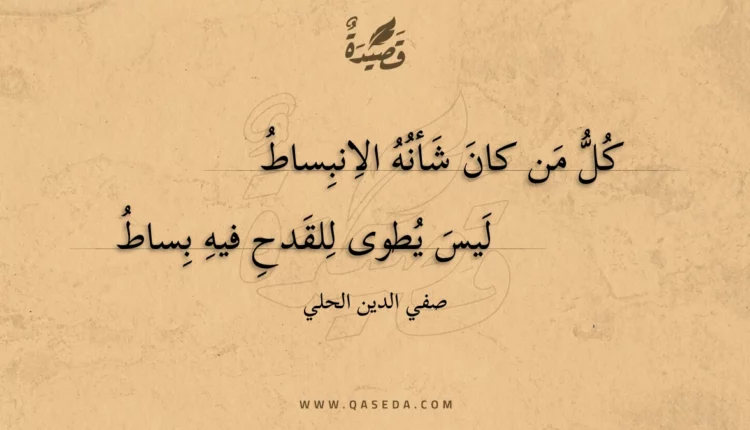 قَصِيْدَةٌ
كُلُّ مَن كانَ شَأنُهُ الاِنبِساطُ
لَيسَ يُطوى لِلقَدحِ فيهِ بِساطُ
صفي الدين الحلي
WWW.QASEDA.COM